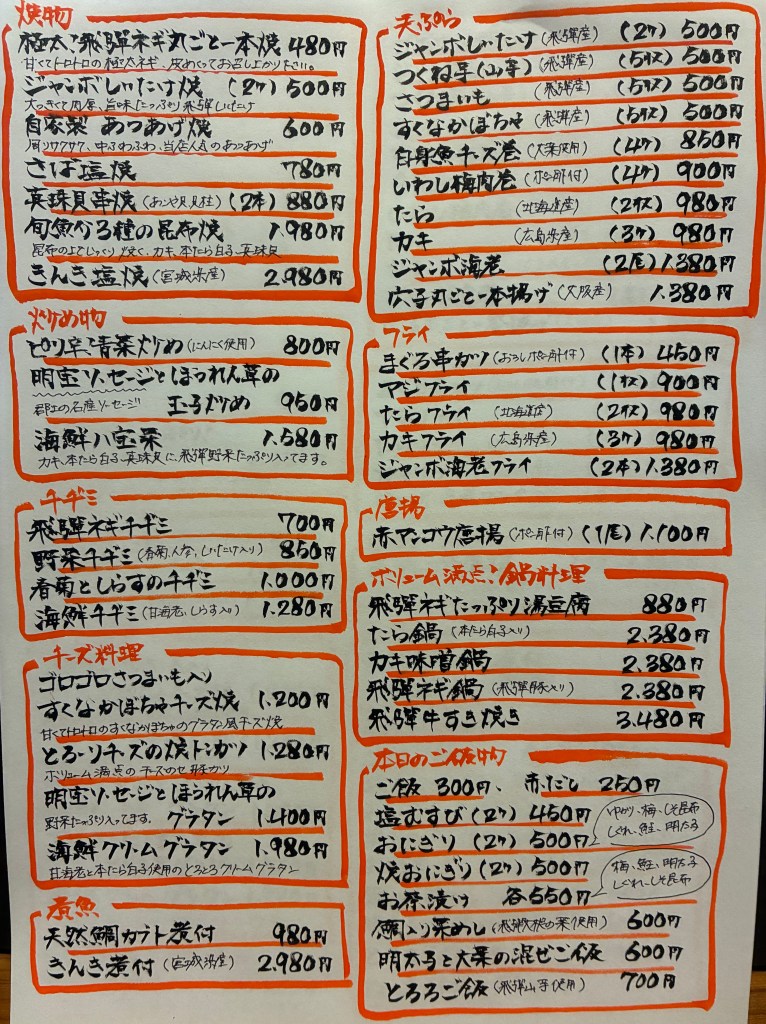 焼物
極太!飛騨ネギ丸ごと一本焼 480円
甘くてトロトロの極太ネギ、皮めくってお召し上がり下さい。
ジャンボしいたけ焼 (2ケ) 500円
大っきくて肉厚、旨味たっぷり飛騨しいたけ
自家製 あつあげ焼 600円
周りサクサク、中ふわふわ、当店人気のあつあげ
さば塩焼 780円
真珠貝串焼(あこや貝貝柱)(2本) 880円
旬魚介3種の昆布焼 1.980円
昆布の上でじっくり焼く、カキ、本たら白子、真珠貝
きんき塩焼(宮城県産) 2.980円
炒め物
ピリ辛、青菜炒め(にんにく使用) 800円
明宝ソーセージとほうれん草の
郡上の名産ソーセージ 玉子炒め 950円
海鮮八宝菜 1.580円
カキ、本たら白子、真珠貝に、飛騨野菜たっぷり入ってます。
チヂミ
飛騨ネギチヂミ 700円
野菜チヂミ(春菊、人参、しいたけ入り) 850円
春菊としらすのチヂミ 1.000円
海鮮チヂミ(甘海老、しらす入り) 1.280円
チーズ料理
ゴロゴロさつまいも入り
すくなかぼちゃチーズ焼 1.200円
甘くてトロトロのすくなかぼちゃのグラタン風チーズ焼
とろ〜りチーズの焼トンカツ 1.280円
ボリューム満点のチーズのせ豚カツ
明宝ソーセージとほうれん草の
野菜たっぷり入ってます。 グラタン 1.400円
海鮮クリームグラタン 1.980円
甘海老と本たら白子使用のとろとろクリームグラタン
煮魚
天然鯛カブト煮付 980円
きんき煮付(宮城県産) 2.980円
天ぷら
ジャンボしいたけ(飛騨産) (2ケ) 500円
つくね芋(山芋)(飛騨産) (5枚) 500円
さつまいも (飛騨産) (5枚) 500円
すくなかぼちゃ(飛騨産) (5枚) 500円
白身魚チーズ巻(大葉使用) (4ケ) 850円
いわし梅肉巻(ポン酢付) (4ケ) 900円
たら (北海道産) (2枚) 980円
カキ (広島県産) (3ケ) 980円
ジャンボ海老 (2尾) 1.380円
穴子丸ごと一本揚げ(大阪産) 1.380円
フライ
まぐろ串カツ(おろしポン酢付) (1本) 450円
アジフライ (1枚) 900円
たらフライ (北海道産) (2枚) 980円
カキフライ (広島県産) (3ケ) 980円
ジャンボ海老フライ (2本) 1.380円
唐揚
赤マンコウ唐揚(ポン酢付) (1尾) 1.100円
ボリューム満点!鍋料理
飛騨ネギたっぷり湯豆腐 880円
たら鍋(本たら白子入り) 2.380円
カキ味噌鍋 2.380円
飛騨ネギ鍋(飛騨豚入り) 2.380円
飛騨牛すき焼き 3.480円
本日のご飯物
ご飯 300円、 赤だし 250円
塩むすび (2ケ) 450円
おにぎり (2ケ) 500円
ゆかり、梅、しそ昆布
しぐれ、鮭、明太子
焼おにぎり (2ケ) 500円
お茶漬け 各550円
梅、鮭、明太子
しぐれ、しそ昆布
鯛入り菜めし(飛騨大根の葉使用) 600円
明太子と大葉の混ぜご飯 600円
とろろご飯(飛騨山芋使用) 700円